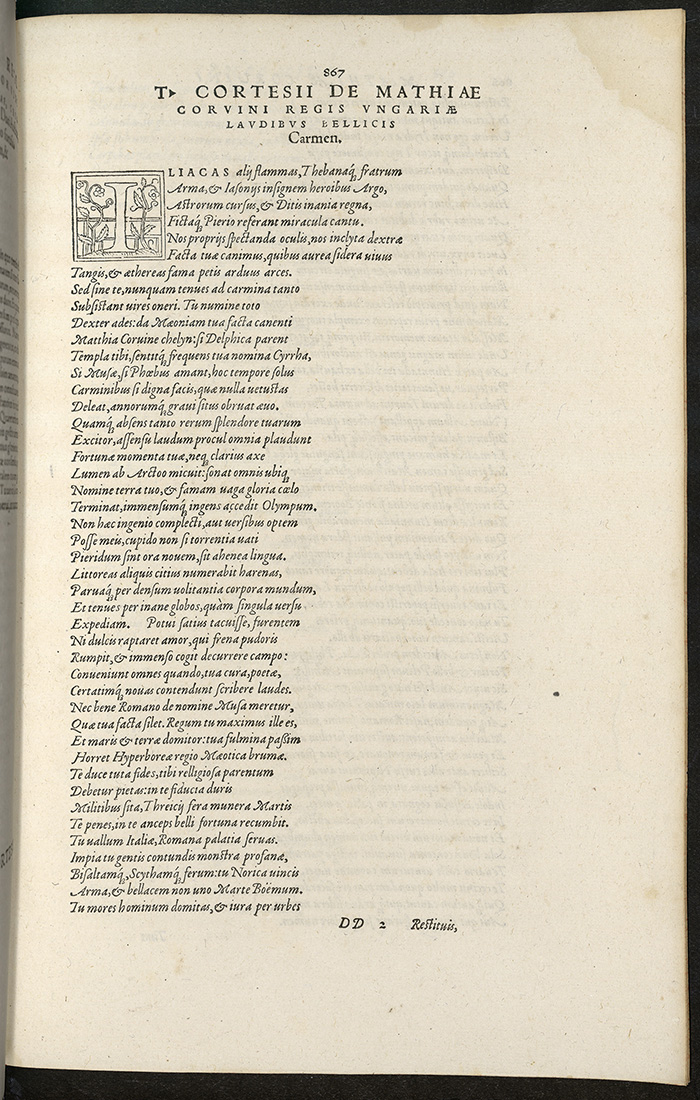 867
T. CORTESII DE MATHIAE
CORVINI REGIS VNGARIÆ
LAVDIBVS BELLICIS
Carmen.
ILIACAS alij flammas, Thebanaq́; fratrum
Arma, & Iasonijs insignem heroibus Argo,
Astrorum cursus, & Ditis inania regna,
Fictaq́; Pierio referant miracula cantu.
Nos proprijs spectanda oculis, nos inclyta dextræ
Facta tuæ canimus, quibus aurea sidera uiuus
Tangis, & æthereas fama petis arduus arces.
Sed sine te, nunquam tenues ad carmina tanto
Subsistant uires oneri. Tu numine toto
Dexter ades: da Mæoniam tua facta canenti
Matthia Coruine chelyn: si Delphica parent
Templa tibi, sentitq́; frequens tua nomina Cyrrha,
Si Musæ, si Phœbus amant, hoc tempore solus
Carminibus si digna facis, quæ nulla uetustas
Deleat, annorumq́; graui situs obruat æuo.
Quamq́; absens tanto rerum splendore tuarum
Excitor, assensu laudum procul omnia plaudunt
Fortunæ momenta tuæ, neq; clarius axe
Lumen ab Arctoo micuit: sonat omnis ubiq;
Nomine terra tuo, & famam uaga gloria cœlo
Terminat, immensumq́; ingens accedit Olympum.
Non hæc ingenio complecti, aut uersibus optem
Posse meis, cupido non si torrentia uati
Pieridum sint ora nouem, sit ahenea lingua.
Littoreas aliquis citius numerabit harenas,
Paruaq́; per densum uolitantia corpora mundum,
Et tenues per inane globos, quàm singula uersu
Expediam. Potui satius tacuisse, furentem
Ni dulcis raptaret amor, qui frena pudoris
Rumpit, & immenso cogit decurrere campo:
Conueniunt omnes quando, tua cura, poetæ,
Certatimq́; nouas contendunt scribere laudes.
Nec bene Romano de nomine Musa meretur,
Quæ tua facta silet. Regum tu maximus ille es,
Et maris & terræ domitor: tua fulmina passim
Horret Hyperboreæ regio Mæotica brumæ.
Te duce tuta fides, tibi relligiosa parentum
Debetur pietas: in te fiducta duris
Militibus sita, Threicij fera munera Martis
Te penes, in te anceps belli fortuna recumbit.
Tu uallum Italiæ, Romana palatia seruas.
Impia tu gentis contundis monstra profanæ,
Bisaltamq́;, Scythamq́; ferum: tu Norica uincis
Arma, & bellacem non uno Marte Boëmum.
Tu mores hominum domitas, & iura per urbes
DD 2 Restituis,